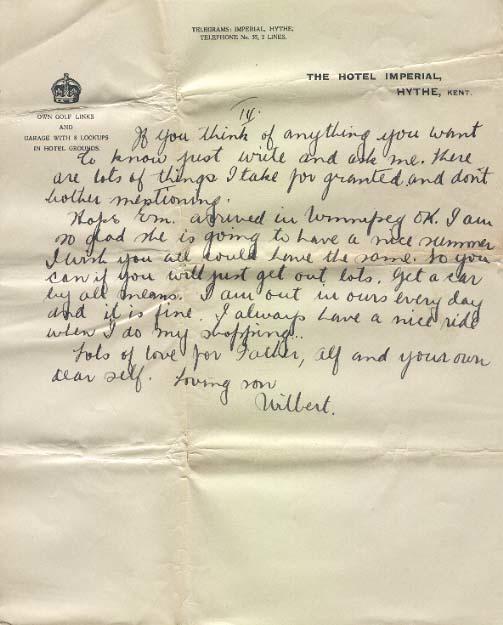 TELEGRAMS: IMPERIAL, HYTHE.
TELEPHONE No. 35, 2 LINES.
THE HOTEL IMPERIAL,
HYTHE, KENT.
OWN GOLF LINKS
AND
GARAGE WITH 8 LOCKUPS
IN HOTEL GROUNDS.
14.
If you think of anything you want
to know just write and ask me. There
are lots of things I take for granted and don't
bother mentioning.
Hope Em. arrived in Winnipeg OK. I am
so glad she is going to have a nice summer
I wish you all could have the same. So you
can if you will just get out lots. Get a car
by all means. I am out in ours every day
and it is fine. I always have a nice ride
when I do my shopping...
Lots of love for Father, Alf and your own
dear self. Loving son
Wilbert.